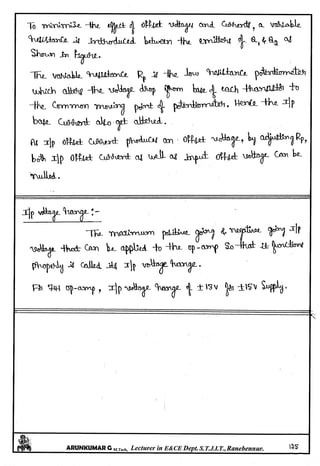 To minimize the effect of offset voltages and currents, a variable
resistance is introduced between the emitters of Q1 & Q2 as
shown in figure.
The variable resistance Rp is the low resistance potentiometer
which alters the voltage drop from base of each transistor to
the common moving point of potentiometer. Hence the I/p
base current also get altered.
As I/p offset current produces an offset voltage, by adjusting Rp,
both I/p offset current as well as input offset voltage can be
nulled.
I/p voltage range :-
The maximum positive going & negative going I/p
voltage that can be applied to the op-amp so that it functions
properly is called its I/p voltage range.
For 741 op-amp, I/p voltage range of ±13v for ±15v supply.
ARUNKUMAR G M.Tech, Lecturer in E&CE Dept. S.T.J.I.T., Ranebennur. 125